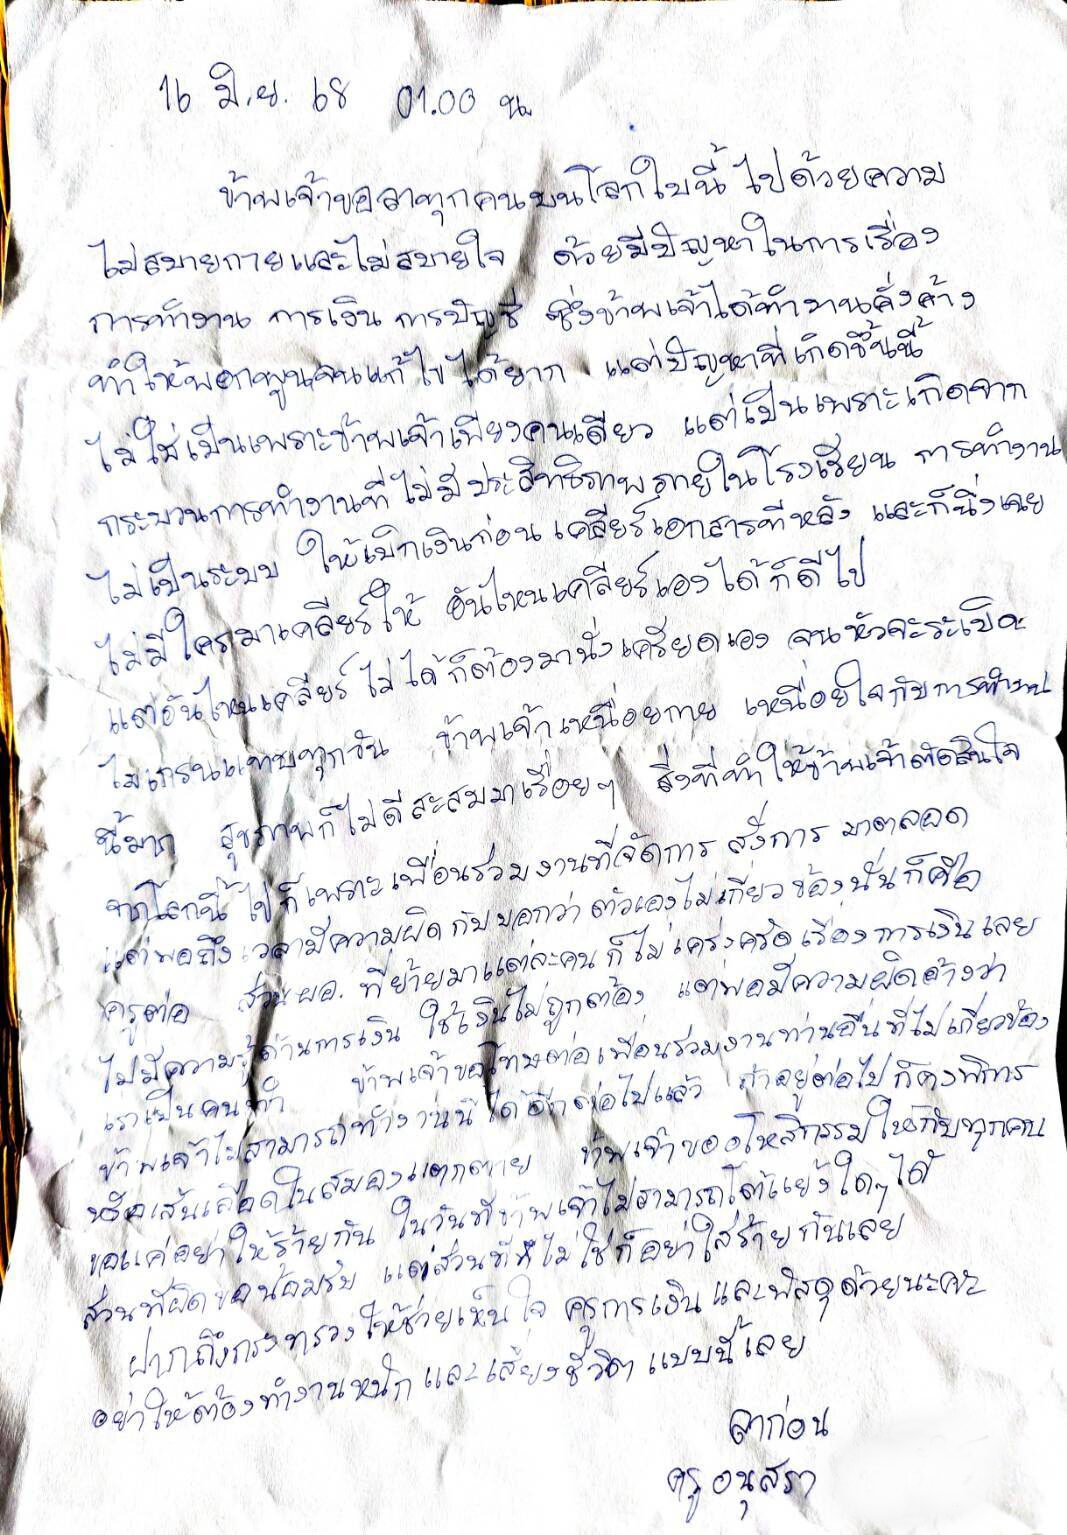 16 มิ.ย. 68 01.00 น.
ข้าพเจ้าขอลาทุกคนบนโลกใบนี้ไปด้วยความ
ไม่สบายกายและไม่สบายใจ ด้วยมีปัญหาในการเรื่อง
การทำงาน การเงิน การบัญชี ซึ่งข้าพเจ้าได้ทำงานคั่งค้าง
ทำให้พอกพูนจนแก้ไขได้ยาก แต่ปัญหาที่เกิดขึ้นนี้
ไม่ใช่เป็นเพราะข้าพเจ้าเพียงคนเดียว แต่เป็นเพราะเกิดจาก
กระบวนการทำงานที่ไม่มีประสิทธิภาพภายในโรงเรียน การทำงาน
ไม่เป็นระบบ ให้เบิกเงินก่อน เคลียร์เอกสารทีหลัง และก็นิ่งเฉย
ไม่มีใครมาเคลียร์ให้ อันไหนเคลียร์เองได้ก็ดีไป
แต่อันไหนเคลียร์ไม่ได้ก็ต้องมานั่งเครียดเอง จนหัวจะระเบิด
ไมเกรนแทบทุกวัน ข้าพเจ้าเหนื่อยกาย เหนื่อยใจกับการทำงาน
นี้มาก สุขภาพก็ไม่ดีสะสมมาเรื่อยๆ สิ่งที่ทำให้ข้าพเจ้าตัดสินใจ
จากโลกนี้ไปก็เพราะเพื่อนร่วมงานที่จัดการ สั่งการ มาตลอด
แต่พอถึงเวลามีความผิดกับบอกว่าตัวเองไม่เกี่ยวข้องนั่นก็คือ
ครูต่อ ส่วนผอ. ที่ย้ายมาแต่ละคนก็ไม่เคร่งครัดเรื่องการเงินเลย
ไม่มีความรู้ด้านการเงิน ใช้เงินไม่ถูกต้อง แต่พอมีความผิดอ้างว่า
เราเป็นคนทำ ข้าพเจ้าขอโทษต่อเพื่อนร่วมงานท่านอื่นที่ไม่เกี่ยวข้อง
ข้าพเจ้าไม่สามารถทำงานนี้ได้อีกต่อไปแล้ว ถ้าอยู่ต่อไปก็คงพิการ
หรือเส้นเลือดในสมองแตกตาย ข้าพเจ้าขออโหสิกรรมให้กับทุกคน
ขอแค่อย่าให้ร้ายกัน ในวันที่ข้าพเจ้าไม่สามารถโต้แย้งใดๆได้
ส่วนที่ผิดขอน้อมรับ แต่ส่วนที่ไม่ใช่ก็อย่าใส่ร้ายกันเลย
ฝากถึงกระทรวงให้ช่วยเห็นใจ ครูการเงิน และพัสดุด้วยนะคะ
อย่าให้ต้องทำงานหนักและเสี่ยงชีวิต แบบนี้เลย
ลาก่อน
ครู อนุสรา